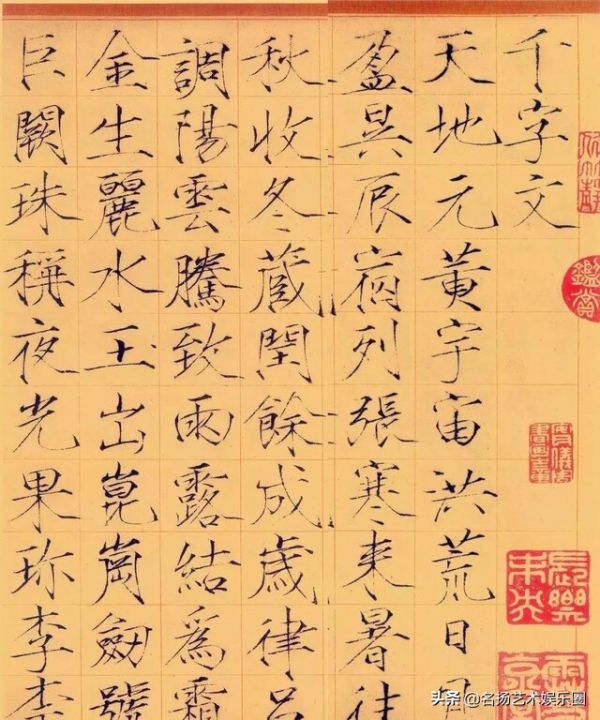 千字文
天地元黄宇宙洪荒日月
盈昃辰宿列張寒来暑往
秋收冬蔵閏餘成歲律吕
調陽雲騰致雨露結爲霜
金生麗水玉出崑崗劔號
巨闕珠稱夜光果珎李柰
鑑賞
头条 @名扬艺术娱乐圈